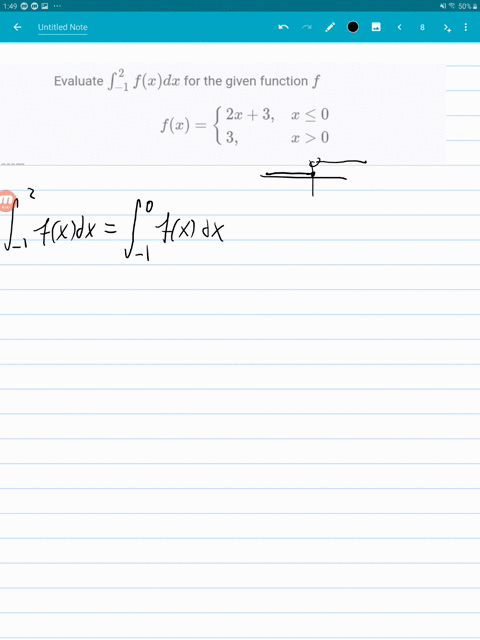 1:49 50%
Untitled Note 8
Evaluate ∫_{-1}^{2} f(x)dx for the given function f
f(x) = { 2x + 3, x ≤ 0
3, x > 0
∫_{-1}^{2} f(x)dx = ∫_{-1}^{0} f(x) dx